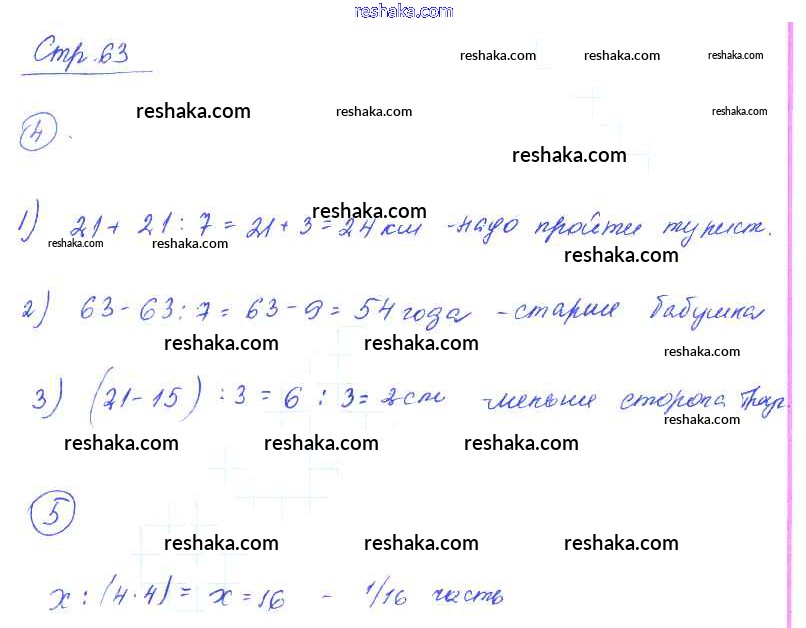 reshaka.com
Стр. 63
reshaka.com reshaka.com reshaka.com
reshaka.com reshaka.com reshaka.com
4.
reshaka.com
reshaka.com
1) 21 + 21 : 7 = 21 + 3 = 24 км - надо пройти турист.
reshaka.com reshaka.com
reshaka.com
2) 63 - 63 : 7 = 63 - 9 = 54 года - старше бабушка
reshaka.com reshaka.com
reshaka.com
3) (21 - 15) : 3 = 6 : 3 = 2 см меньше сторона
reshaka.com
reshaka.com reshaka.com reshaka.com
5
reshaka.com reshaka.com reshaka.com
x : (4 · 4) = x = 16 - 1/16 часть